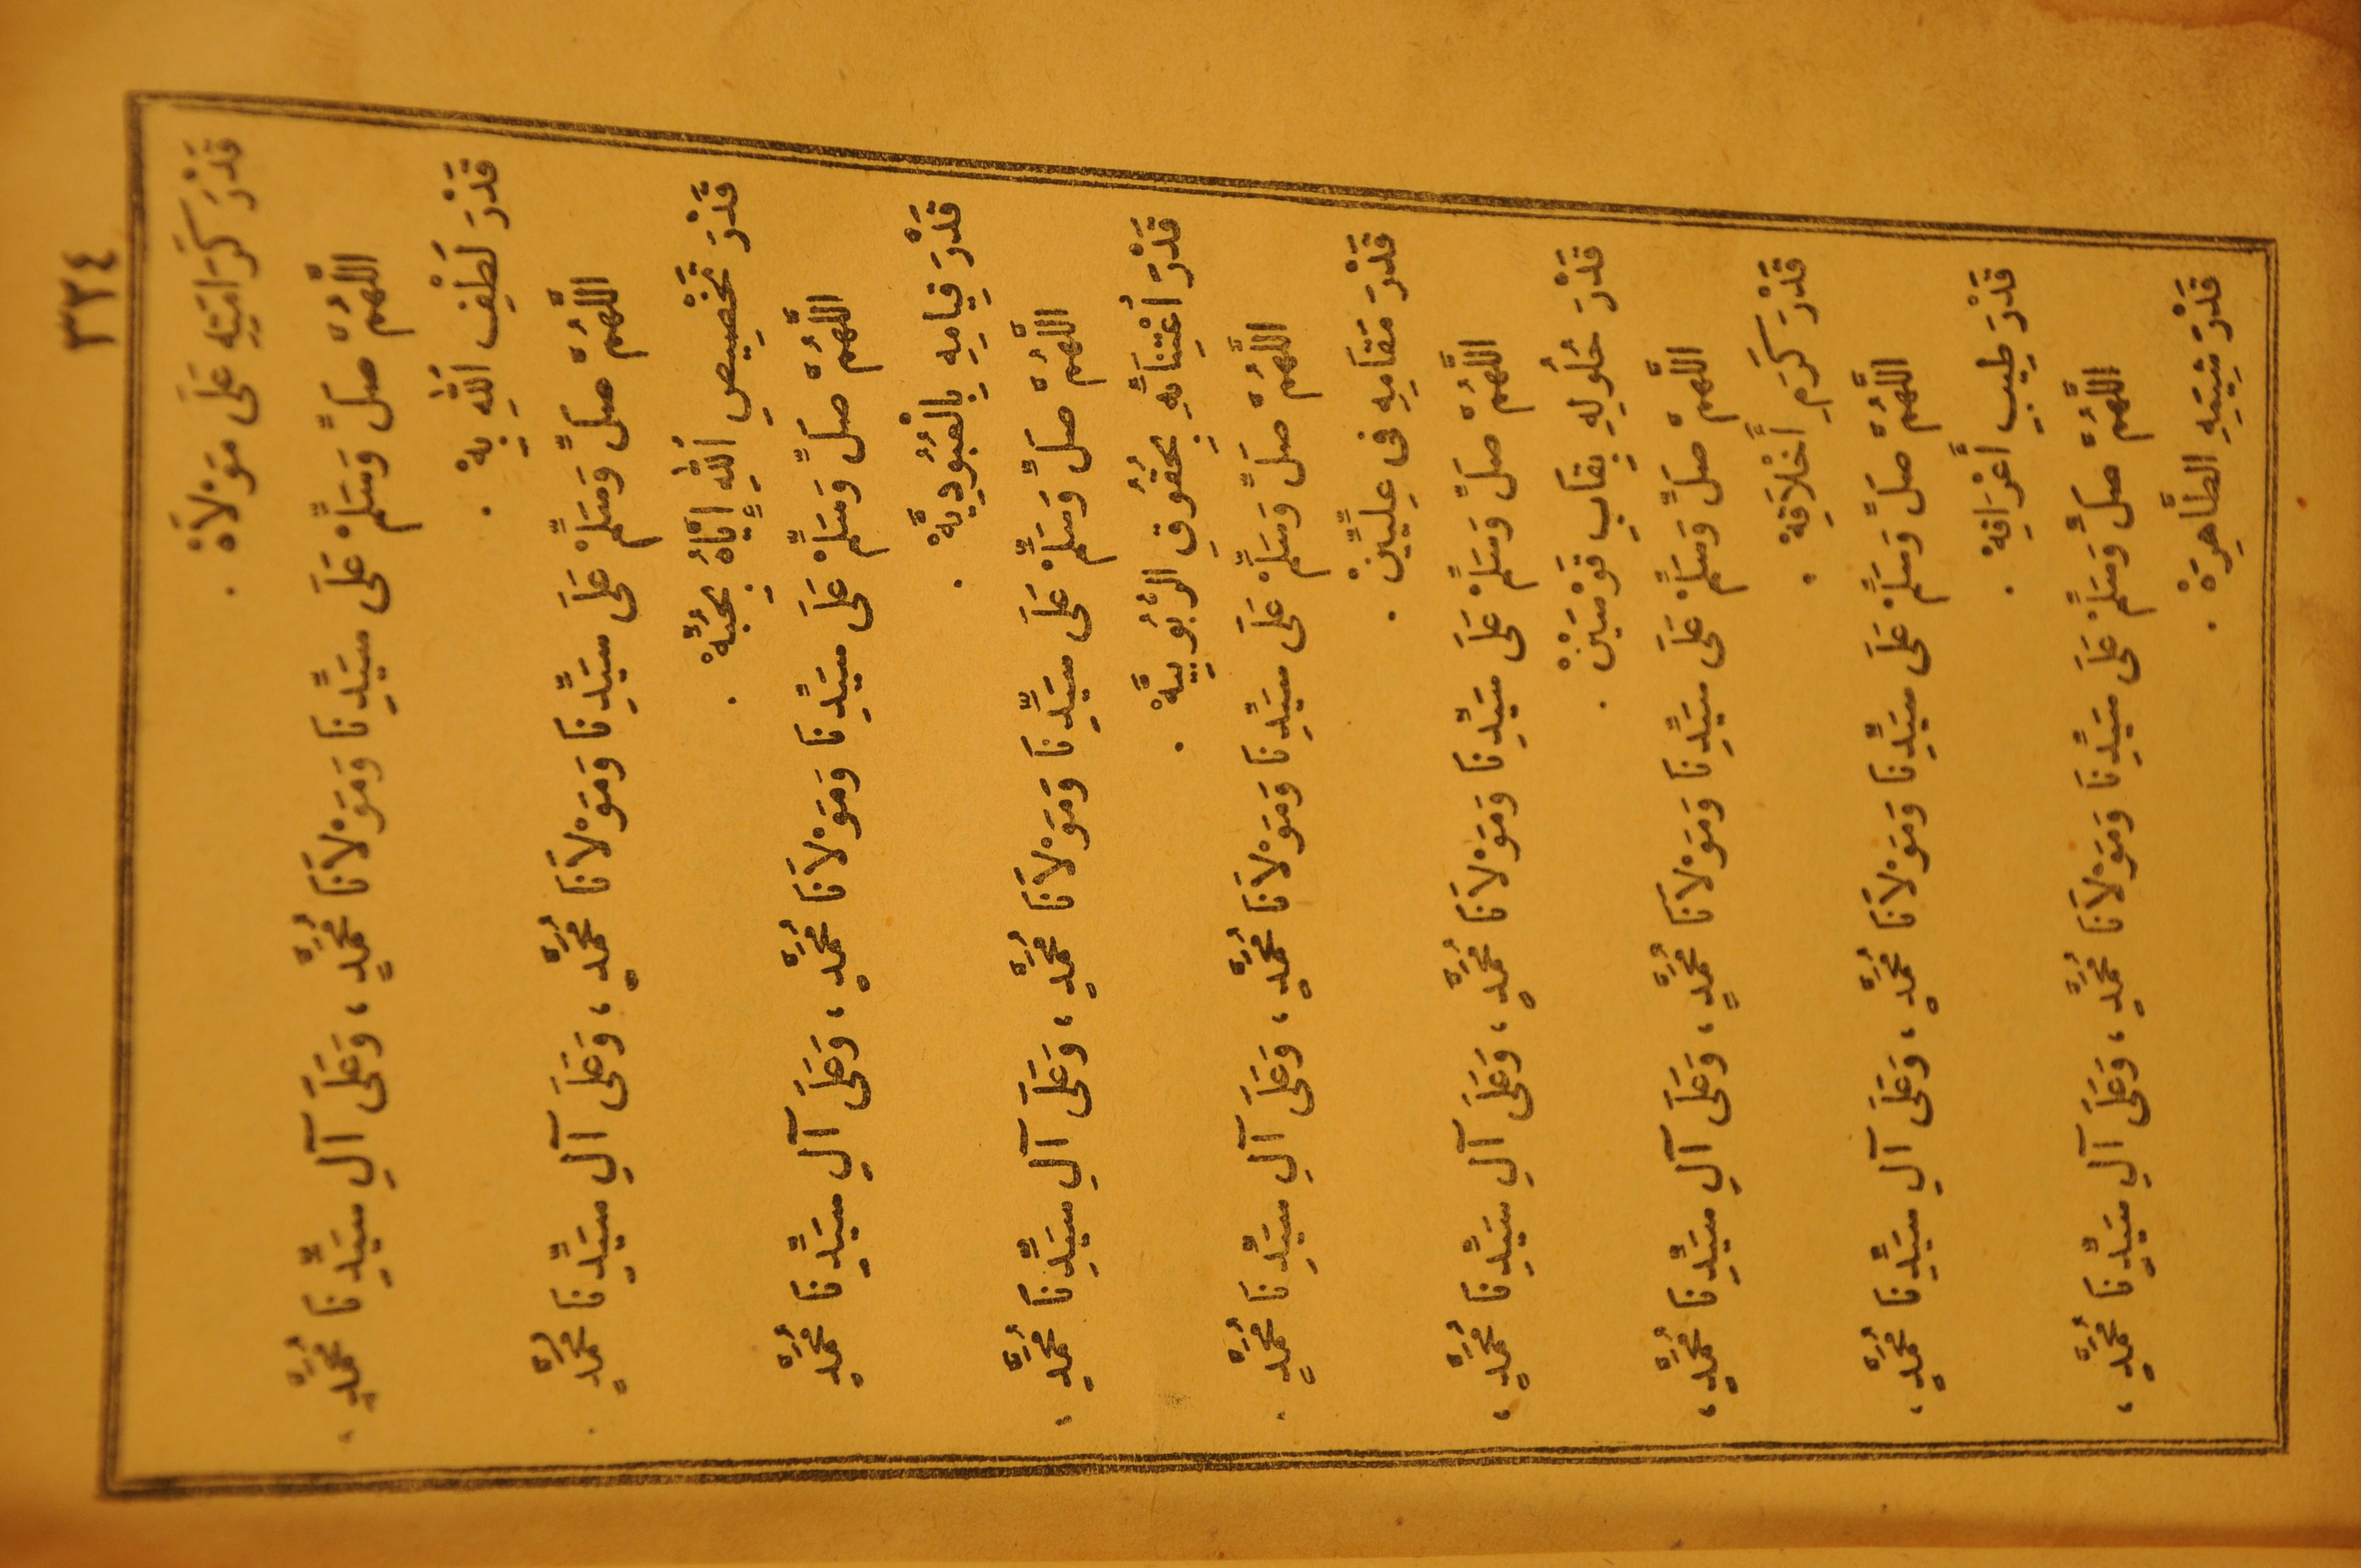 ٣٣٤
قَدْرَ كَرَامَتِهِ عَلَى مَوْلَاهْ .
اللَّهُمَّ صَلِّ وَسَلِّمْ عَلَى سَيِّدِنَا وَمَوْلَانَا مُحَمَّدٍ ، وَعَلَى آلِ سَيِّدِنَا مُحَمَّدٍ ،
قَدْرَ لُطْفِ اللهِ بِهْ .
اللَّهُمَّ صَلِّ وَسَلِّمْ عَلَى سَيِّدِنَا وَمَوْلَانَا مُحَمَّدٍ ، وَعَلَى آلِ سَيِّدِنَا مُحَمَّدٍ .
قَدْرَ تَخْصِيصِ اللهِ إِيَّاهُ بِحُبِّهْ .
اللَّهُمَّ صَلِّ وَسَلِّمْ عَلَى سَيِّدِنَا وَمَوْلَانَا مُحَمَّدٍ ، وَعَلَى آلِ سَيِّدِنَا مُحَمَّدٍ
قَدْرَ قِيامِهِ بِالْعُبُودِيَّهْ .
اللَّهُمَّ صَلِّ وَسَلِّمْ عَلَى سَيِّدِنَا وَمَوْلَانَا مُحَمَّدٍ ، وَعَلَى آلِ سَيِّدِنَا مُحَمَّدٍ ،
قَدْرَ اُعْتِنَائِهِ بِحُقُوقِ الرُّبُوبِيَّهْ .
اللَّهُمَّ صَلِّ وَسَلِّمْ عَلَى سَيِّدِنَا وَمَوْلَانَا مُحَمَّدٍ ، وَعَلَى آلِ سَيِّدِنَا مُحَمَّدٍ .
قَدْرَ مَقَامِهِ فى عِلِّيِّينْ .
اللَّهُمَّ صَلِّ وَسَلِّمْ عَلَى سَيِّدِنَا وَمَوْلَانَا مُحَمَّدٍ ، وَعَلَى آلِ سَيِّدِنَا مُحَمَّدٍ ،
قَدْرَ حُلُولِهِ بِقَابِ قَوْسَيْنْ .
اللَّهُمَّ صَلِّ وَسَلِّمْ عَلَى سَيِّدِنَا وَمَوْلَانَا مُحَمَّدٍ ، وَعَلَى آلِ سَيِّدِنَا مُحَمَّدٍ ،
قَدْرَ كَرَمِ أَخْلَاقِهْ .
اللَّهُمَّ صَلِّ وَسَلِّمْ عَلَى سَيِّدِنَا وَمَوْلَانَا مُحَمَّدٍ ، وَعَلَى آلِ سَيِّدِنَا مُحَمَّدٍ ،
قَدْرَ طِيبِ أَعْرَاقِهْ .
اللَّهُمَّ صَلِّ وَسَلِّمْ عَلَى سَيِّدِنَا وَمَوْلَانَا مُحَمَّدٍ ، وَعَلَى آلِ سَيِّدِنَا مُحَمَّدٍ ،
قَدْرَ شِيَمِهِ الطَّاهِرَهْ .